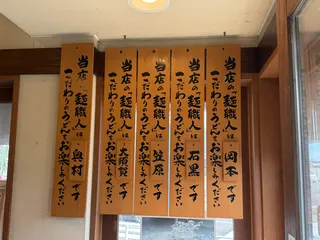 当店の「麺職人」は 岡本 です
こだわりのうどんをお楽しみください
当店の「麺職人」は 石黒 です
こだわりのうどんをお楽しみください
当店の「麺職人」は 笠原 です
こだわりのうどんをお楽しみください
当店の「麺職人」は 大須賀 です
こだわりのうどんをお楽しみください
当店の「麺職人」は 奥村 です
こだわりのうどんをお楽しみください